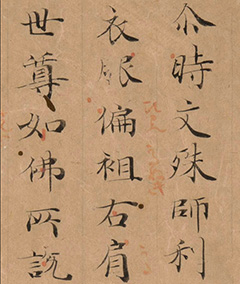 尒時文殊師利
衣服偏袒右肩
世尊如佛所說